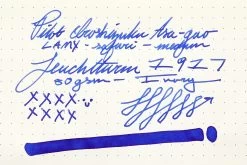 Pilot Iroshizuku Asa-gao
LAMY - safari - medium
Leuchtturm 1917
80gsm - Ivory
xxxx
xxxx